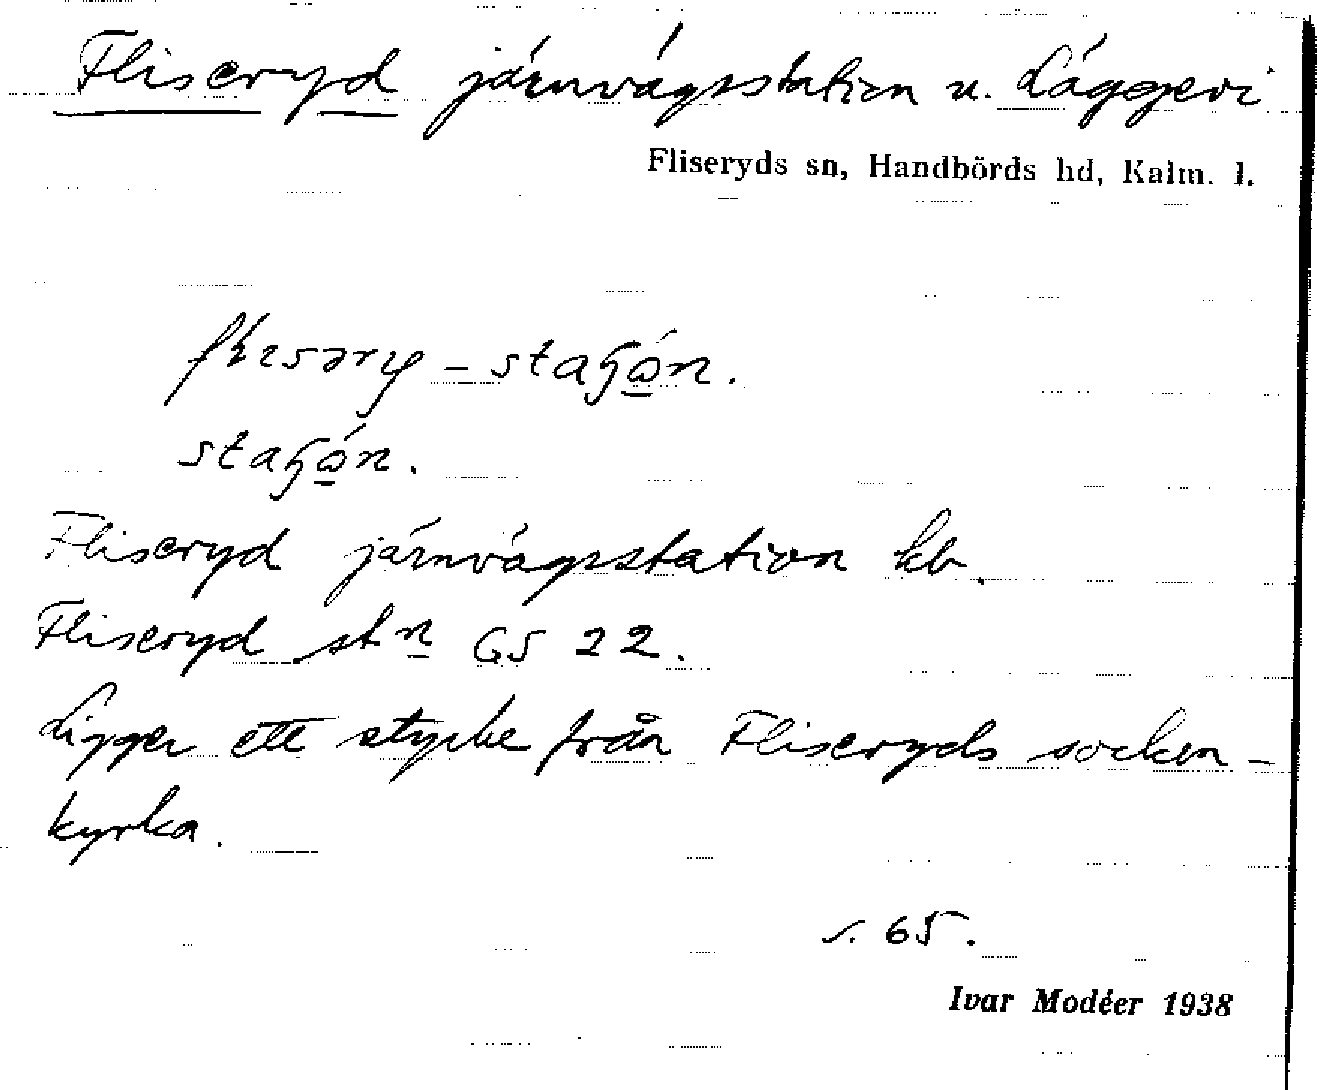 Fliseryd järnvägsstation u. Läggevi
Fliseryds sn, Handbörds hd, Kalm. l.
Fliseryd järnvägsstation kb.
Fliseryd stn GS 22.
Ligger ett stycke från Fliseryds socken-
kyrka.
s. 65.
Ivar Modéer 1938